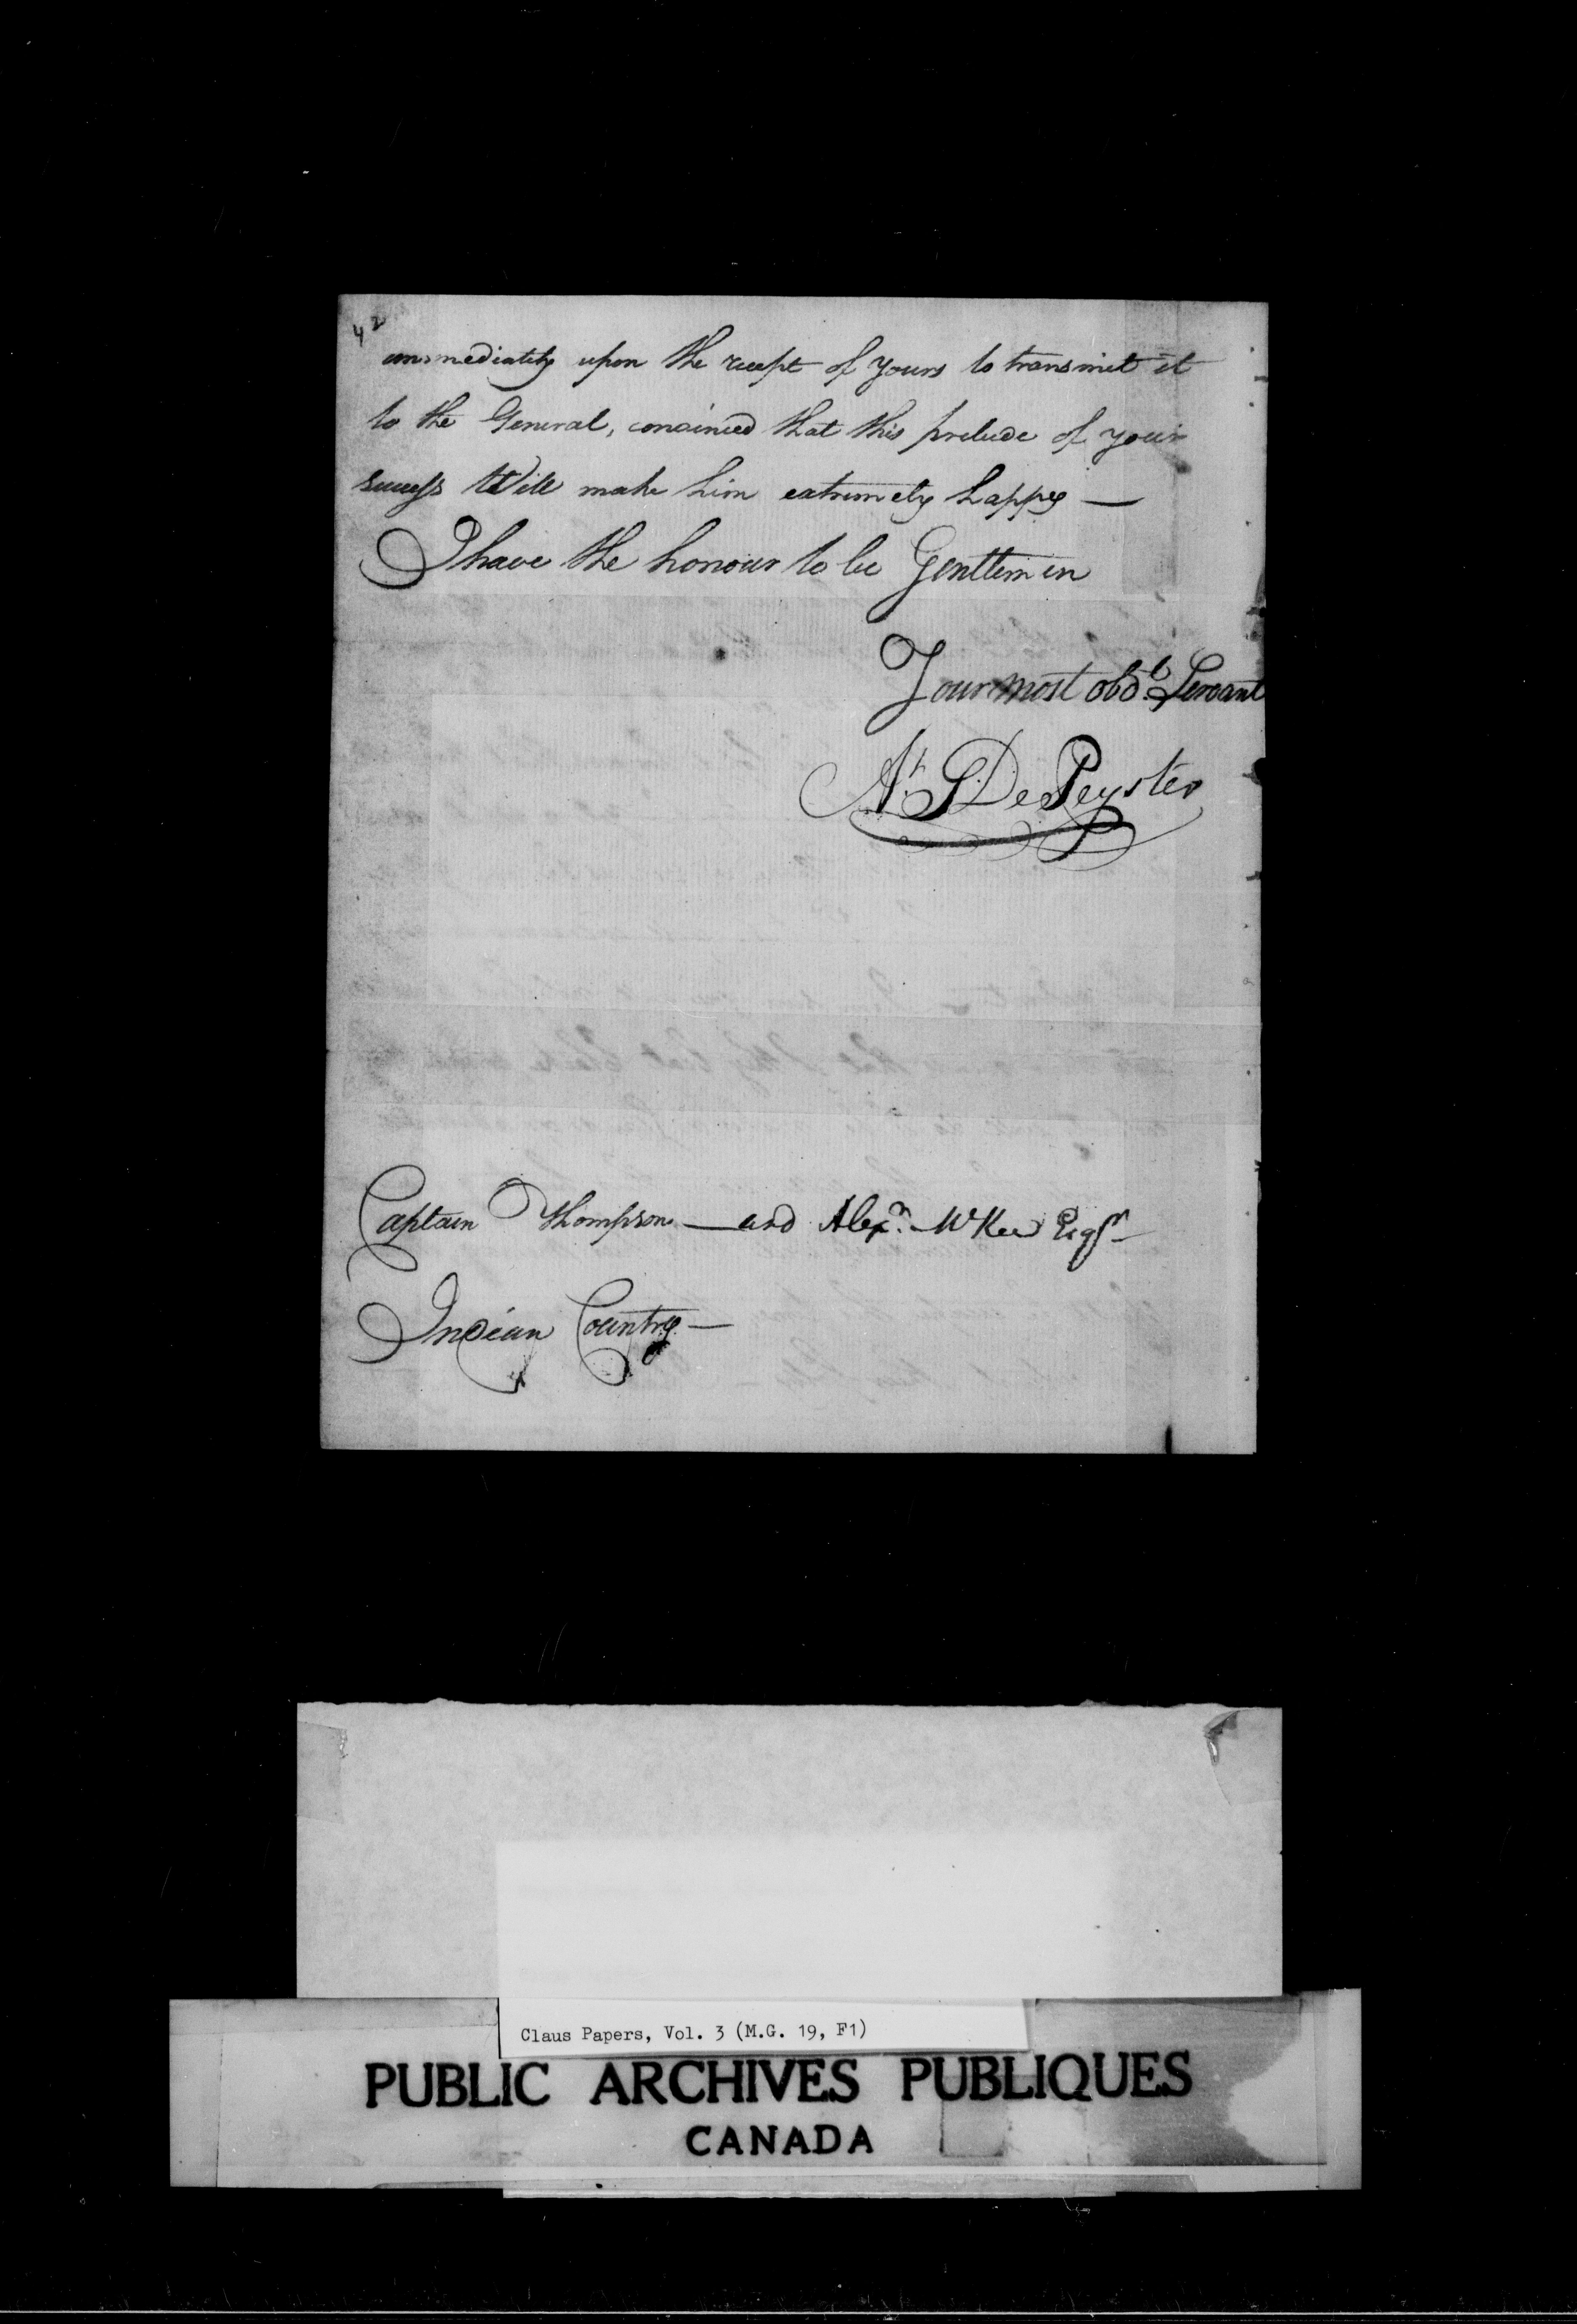 42
immediately upon the receipt of yours to transmit it
to the General, convinced that this prelude of your
success Will make him extremely happy —
I have the honour to be Gentlemen
Your most obdt. Servant
At. S De Peyster
Captain Thompson — and Alexr. McKee Esqrs —
Indian Country —
Claus Papers, Vol. 3 (M.G. 19, F1)
PUBLIC ARCHIVES PUBLIQUES
CANADA